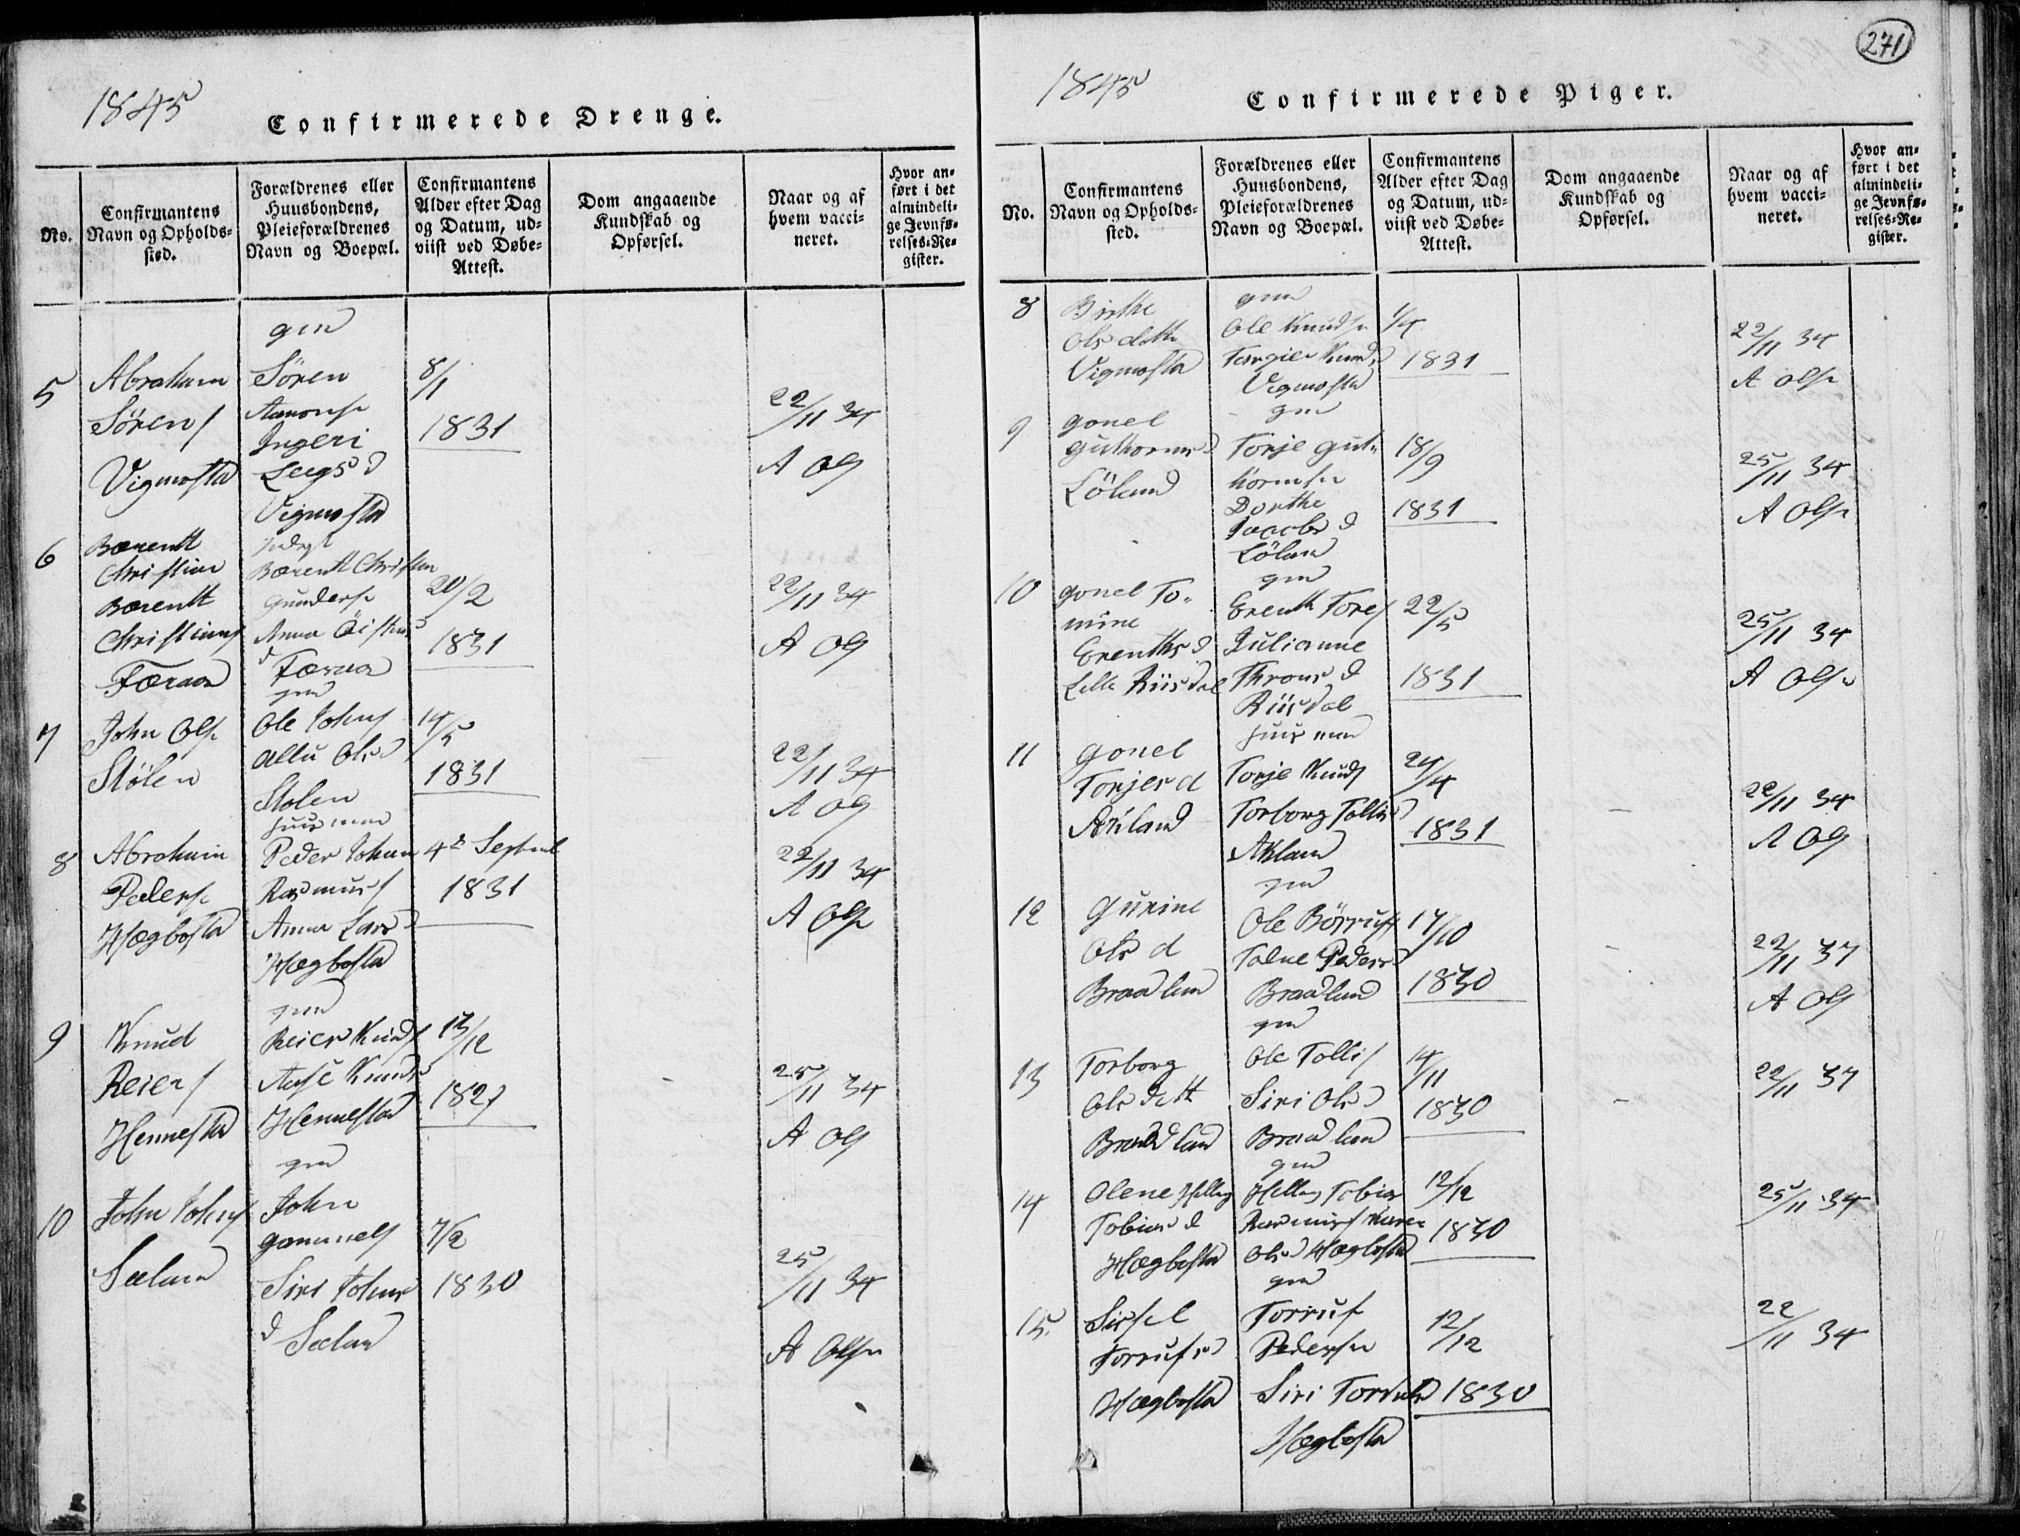 1845
Confirmerede Drenge.
No.
Confirmantens
Navn og Opholds-
sted.
Forældrenes eller
Huusbondens,
Pleieforældrenes
Navn og Boepæl.
Confirmantens
Alder efter Dag
og Datum, ud-
viist ved Døbe-
Attest.
Dom angaaende
Kundskab og
Opførsel.
Naar og af
hvem vacci-
neret.
Hvor an-
ført i det
almindeli-
ge Jevnfø-
relses-Re-
gister.
5
Abraham
Sørens
Vigmosta
gm
Søren
Aanons
Ingeri
Leegs d
Vigmosta
8/1
1831
22/11 34
A Ols
6
Barentt
Christian
Barentt
Christians
Færaa
Barentt Christian
Gunders
Anna
d Færaa
20/2
1831
22/11 34
A Ols
7
John Ols
Stölen
gm
Ole Johns
Ols d
Stolen
14/5
1831
22/11 34
A Ols
8
Abraham
Peders
Hægbosta
huusman
Peder Johan
Rasmus
Anna Lars d
Hægbosta
4de Septemb
1831
22/11 34
A Ols
9
Knud
Reiers
Hennesta
gm
Reier Knuds
Aase Knuds
Hennestad
13/12
1827
25/11 34
A Ols
10
John Johns
Sælan
gm
John
Gammels
Siri Johns
d Sælan
7/2
1830
25/11 34
A Ols
271
1845
Confirmerede Piger.
No.
Confirmantens
Navn og Opholds-
sted.
Forældrenes eller
Huusbondens,
Pleieforældrenes
Navn og Boepæl.
Confirmantens
Alder efter Dag
og Datum, ud-
viist ved Døbe-
Attest.
Dom angaaende
Kundskab og
Opførsel.
Naar og af
hvem vacci-
neret.
Hvor an-
ført i det
almindeli-
ge Jevnfø-
relses-Re-
gister.
8
Birthe
Ols datter
Vigmosta
gm
Ole Knuds
Tangier Knuds d
Vigmosta
1/4
1831
22/11 34
A Ols
9
Gonel
Guthorms d
Löland
gm
Torje Gut-
horms
Dorthe
Jacobs d
Lölan
18/9
1831
25/11 34
A Ols
10
Gonel To-
mine
Erenths d
Lille Riisdal
gm
Erenth Tores
Julianne
Throns d
Riisdal
22/5
1831
25/11 34
A Ols
11
Gonel
Torjes d
Akland
huusman
Torje Knuds
Torborg Tollis d
Aklan
24/4
1831
22/11 34
A Ols
12
Gurine
Ols d
Braadlan
gm
Ole Börrufs
Talne Peders d
Braadland
17/10
1830
22/11 37
A Ols
13
Torborg
Ols dtt
Braadland
gm
Ole Tollis
Siri Ols d
Braadlan
14/11
1830
22/11 37
14
Olene Helleg
Tobias d
Hægbosta
gm
Helleg Tobias
Rasmus Karen
Ols d Hægbosta
12/12
1830
25/11 34
15
Sissel
Torrufs d
Hægbosta
gm
Torruf
Peders
Siri Tordals d
Hægbosta
12/12
1830
22/11 34